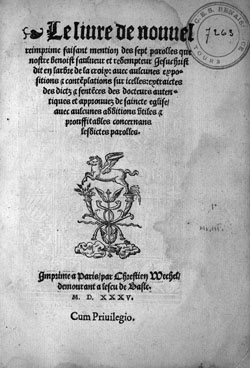 Le liure de nouuel
reimprime faisant mention des sept parolles que
nostre benoist saulueur et redempteur Jesuchrist
dit en larbre de la croix: auec aulcunes expo-
sitions & contēplations sur icelles: extraictes
des dictz & sentēces des docteurs auten-
tiques et approuuez de saincte eglise/
auec aulcunes additions vtiles &
prouffitables concernans
lesdictes parolles.
Imprime a Paris/ par Chrestien Wechel/
demourant a lescu de Basle.
M. D. XXXV.
Cum Priuilegio.
7263